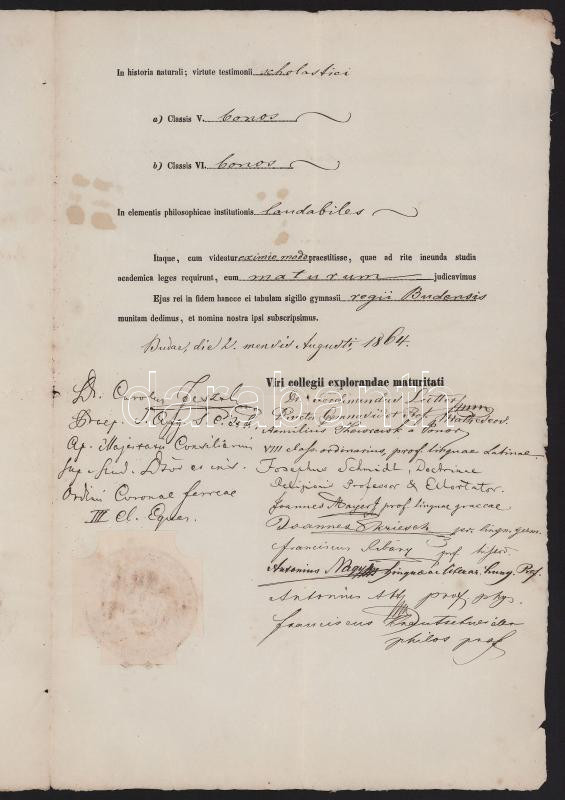 In historia naturali; virtute testimonii scholastici
a) Classis V. bonos
b) Classis VI. bonos
In elementis philosophicae institutionis laudabiles
Itaque, cum videatur eximio modo praestitisse, quae ad rite ineunda studia
academica leges requirunt, eum maturum judicavimus
Ejus rei in fidem hancce ei tabulam sigillo gymnasii regii Budensis
munitam dedimus, et nomina nostra ipsi subscripsimus.
Budae, die 2. mensis Augusti, 1864.
Dr. Carolus
Ap. Majestatis Consiliarius
Ordinis Coronae ferreae
III cl. Eques.
Viri collegii explorandae maturitati
VIII class. ordinarius, prof. linguae Latinae
Josephus Schmidt, Doctrinae
Religionis Professor & Exhortator.
Joannes Mayer prof linguae graecae
Joannes Kriesch
Franciscus Ribáry prof histor.
Antonius Nagy linguae et literar. hung. Prof.
Antonius prof phys.
Franciscus
philos prof
darabanth